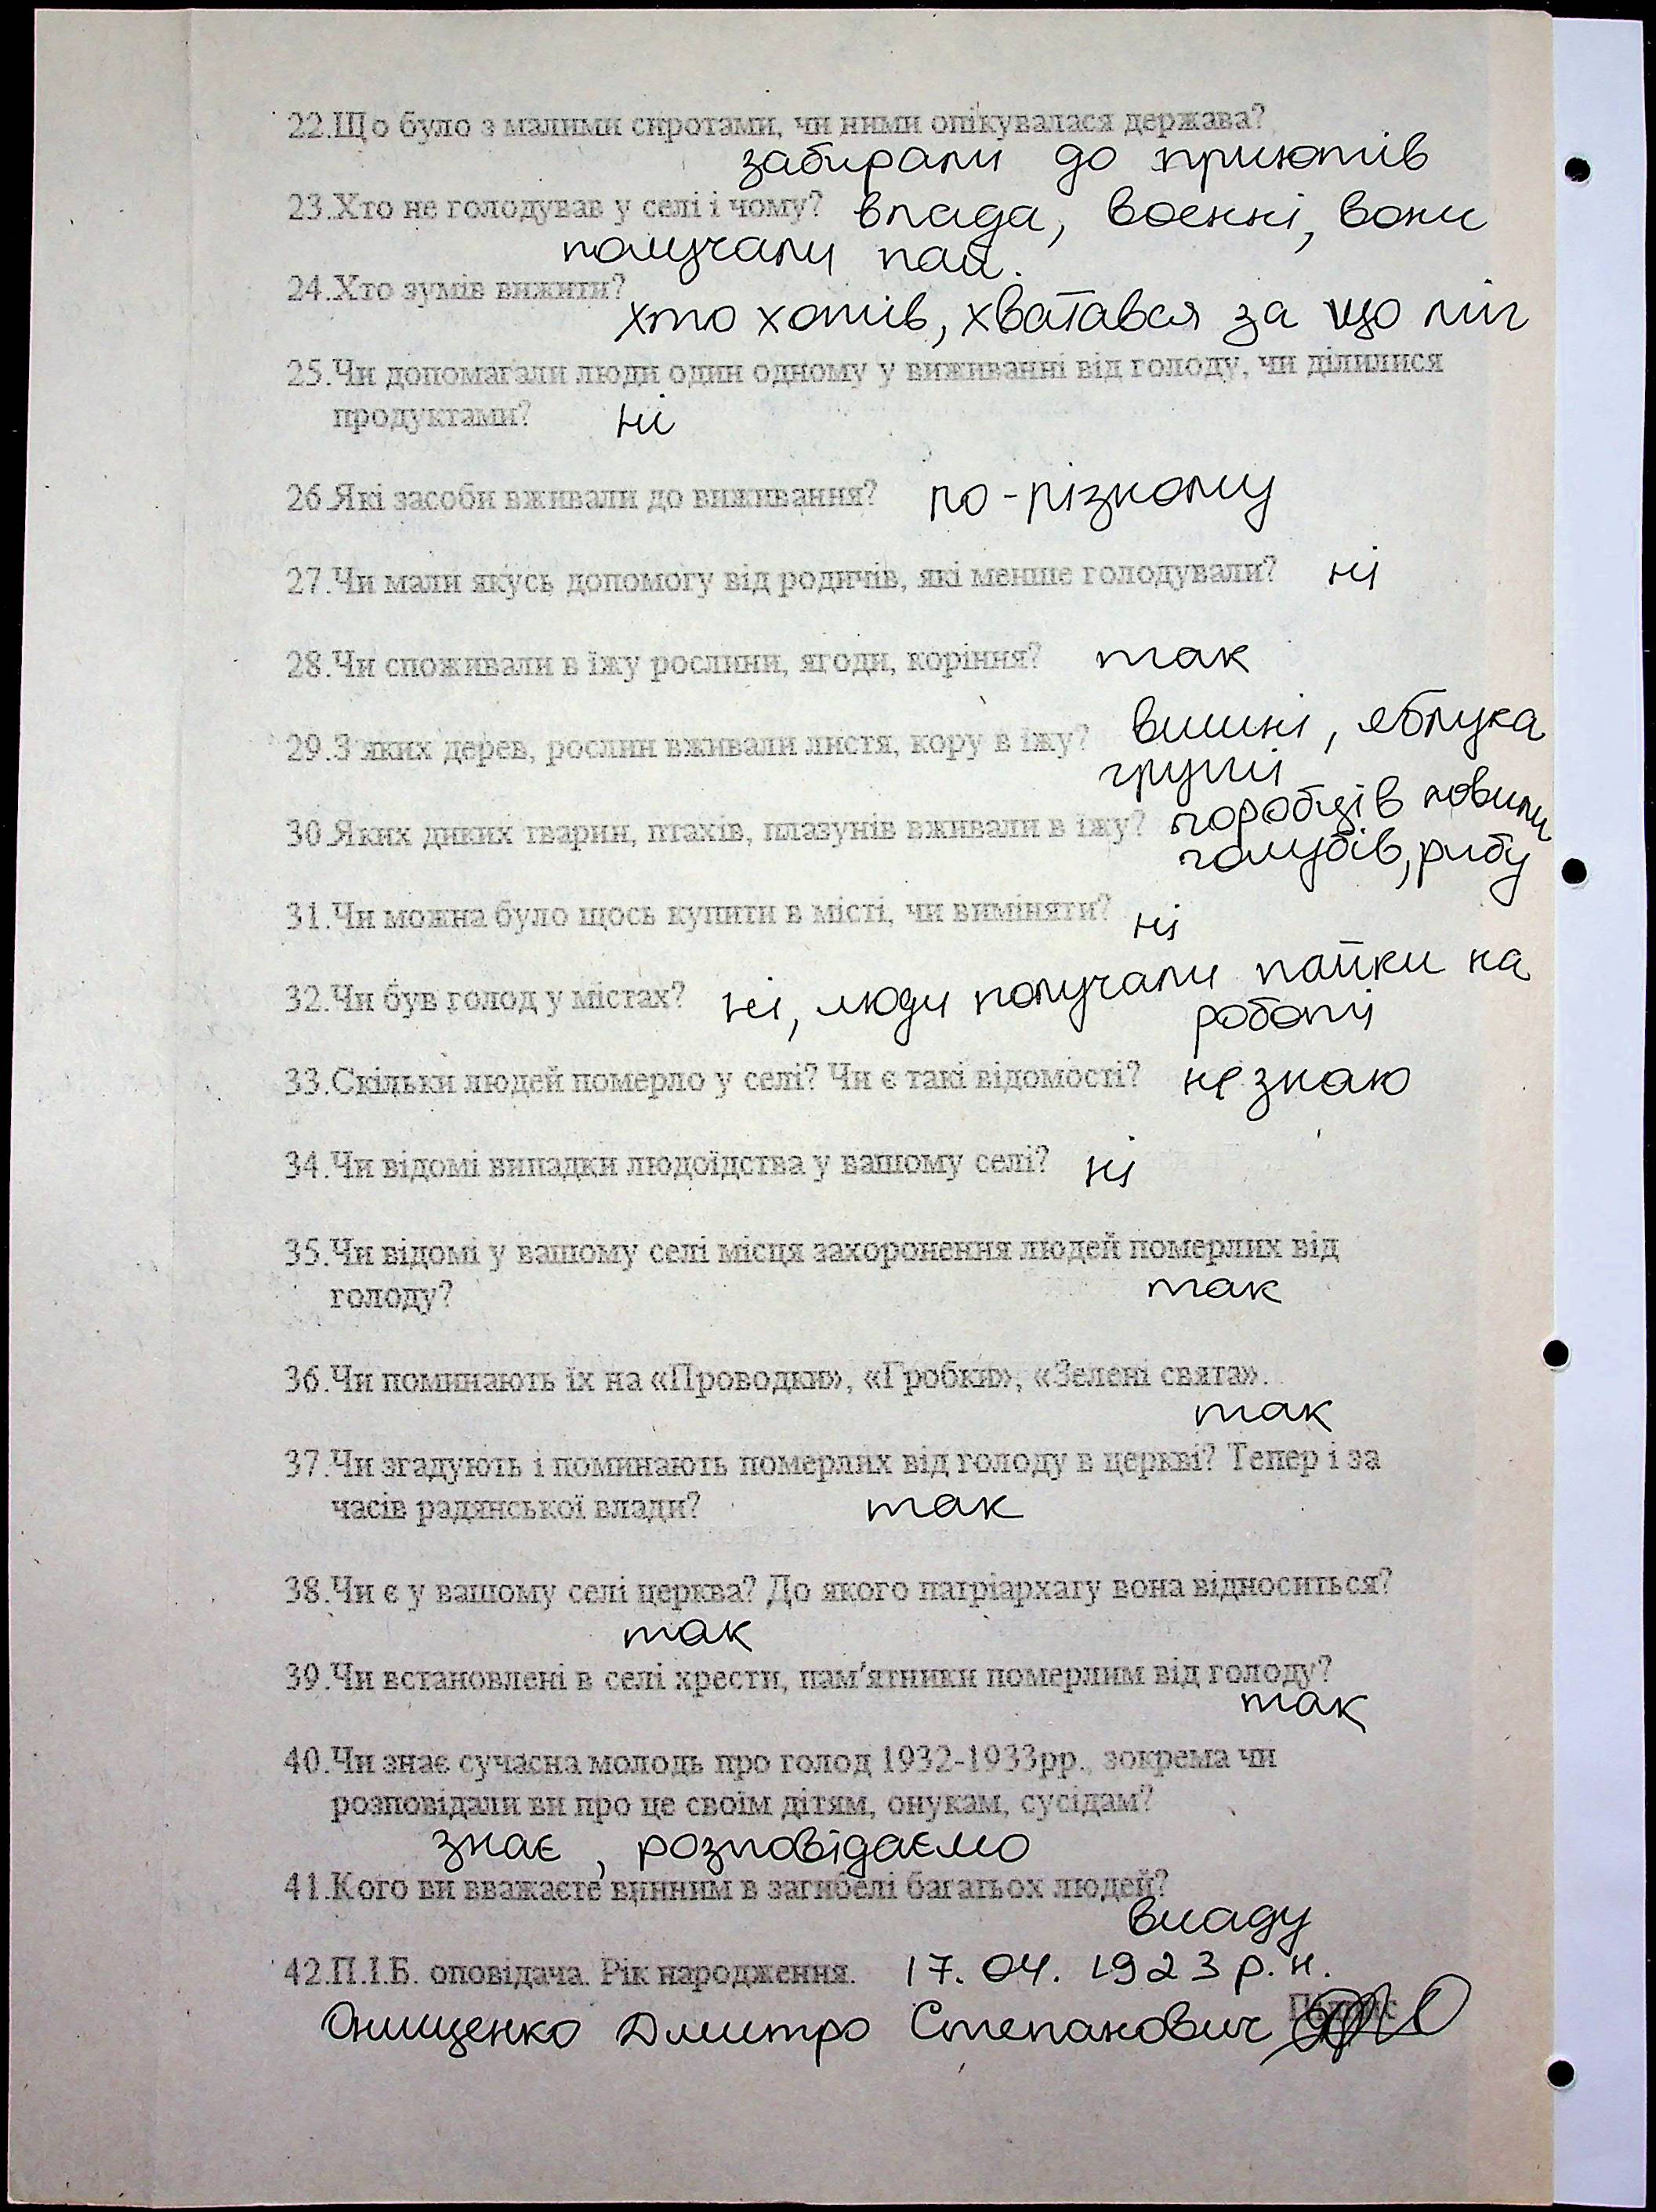 22.Що було з малими сиротами, чи ними опікувалася держава?
забирали до приютів
23.Хто не голодував у селі і чому? влада, воєнні, вони
получали пай.
24.Хто зумів вижити?
хто хотів, хватався за що міг
25.Чи допомагали люди один одному у виживанні від голоду, чи ділилися
продуктами? ні
26.Які засоби вживали до виживання? по-різному
27.Чи мали якусь допомогу від родичів, які менше голодували? ні
28.Чи споживали в їжу рослини, ягоди, коріння? так
29.З яких дерев, рослин вживали листя, кору в їжу? вишні, яблука
груші
30.Яких диких тварин, птахів, плазунів вживали в їжу? горобців ловили
голубів, рибу
31.Чи можна було щось купити в місті, чи виміняти? ні
32.Чи був голод у містах? ні, люди получали пайки на
роботі
33.Скільки людей померло у селі? Чи є такі відомості? не знаю
34.Чи відомі випадки людоїдства у вашому селі? ні
35.Чи відомі у вашому селі місця захоронення людей померлих від
голоду? так
36.Чи поминають їх на «Проводки», «Гробки», «Зелені свята».
так
37.Чи згадують і поминають померлих від голоду в церкві? Тепер і за
часів радянської влади? так
38.Чи є у вашому селі церква? До якого патріархату вона відноситься?
так
39.Чи встановлені в селі хрести, пам'ятники померлим від голоду?
так
40.Чи знає сучасна молодь про голод 1932-1933рр., зокрема чи
розповідали ви про це своїм дітям, онукам, сусідам?
знає, розповідаємо
41.Кого ви вважаєте винним в загибелі багатьох людей?
владу
42.П.І.Б. оповідача. Рік народження. 17.04.1923 р.н.
Підпис
Онищенко Дмитро Степанович